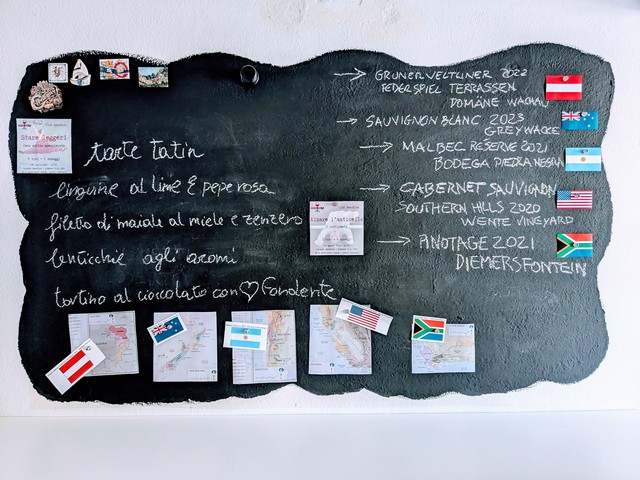 Stare leggeri
tarte tatin
linguine al lime E pepe rosa
filetto di maiale al miele e zenzero
lenticchie agli aromi
tortino al cioccolato con ♡ Fondente
→ GRUNERVELTLINER 2022
FEDERSPIEL TERRASSEN
DOMÄNE WACHAU
→ SAUVIGNON BLANC 2023
GREYWACKE
→ MALBEC RESERVE 2021
BODEGA PIEDRA NEGRA
→ CABERNET SAUVIGNON
SOUTHERN HILLS 2020
WENTE VINEYARD
→ PINOTAGE 2021
DIEMERSFONTEIN